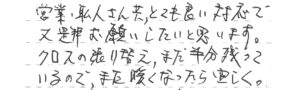 営業、職人さん共、とても良い対応で
又是非お願いしたいと思います。
クロスの張り替え、まだ半分残って
いるので、また暖くなったら宜しく。